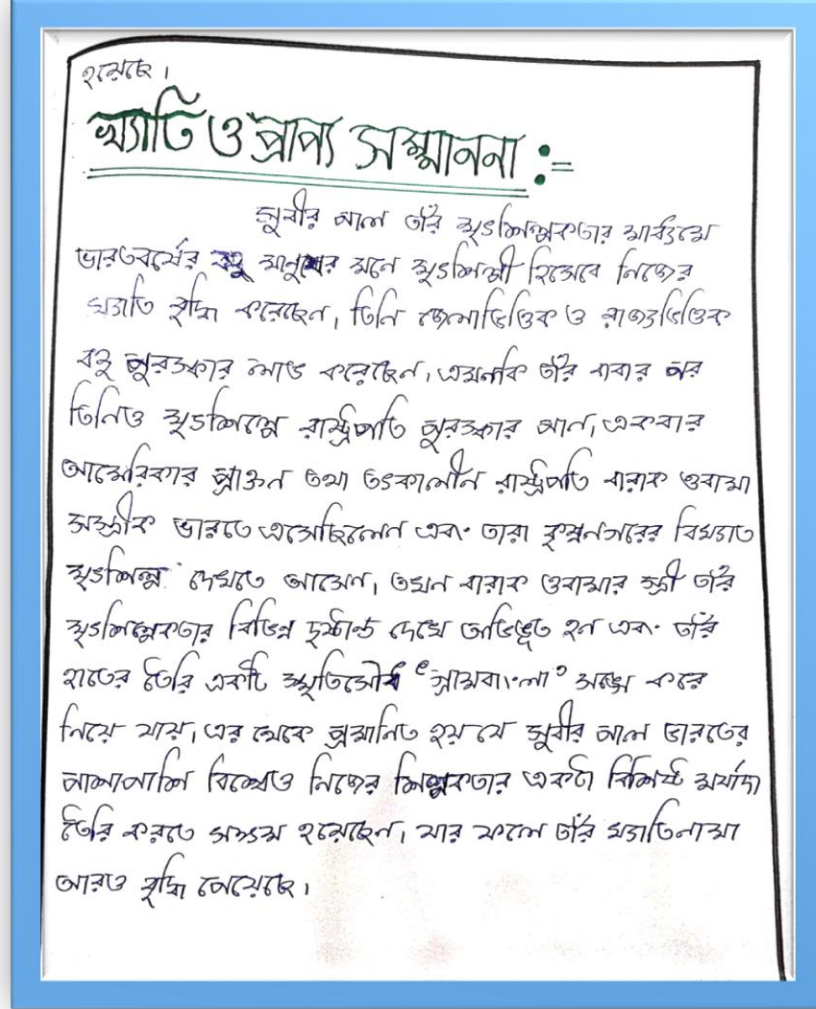 হয়েছে।
খ্যাতি ও প্রাপ্য সম্মাননা :=
সুবীর পাল তাঁর মৃৎশিল্পকতার মাধ্যমে
ভারতবর্ষের বহু মানুষের মনে মৃৎশিল্পী হিসেবে নিজের
খ্যাতি বৃদ্ধি করেছেন, তিনি জেলাভিত্তিক ও রাজ্যভিত্তিক
বহু পুরস্কার লাভ করেছেন, এমনকি তাঁর বাবার পর
তিনিও মৃৎশিল্পে রাষ্ট্রপতি পুরস্কার পান, একবার
আমেরিকার প্রাক্তন তথা তৎকালীন রাষ্ট্রপতি বারাক ওবামা
সস্ত্রীক ভারতে এসেছিলেন এবং তারা কৃষ্ণনগরের বিখ্যাত
মৃৎশিল্প দেখতে আসেন, তখন বারাক ওবামার স্ত্রী তাঁর
মৃৎশিল্পেকতার বিভিন্ন দৃষ্টান্ত দেখে অভিভূত হন এবং তাঁর
হাতের তৈরি একটি স্মৃতিসৌধ ‘গ্রামবাংলা’ সঙ্গে করে
নিয়ে যায়, এর থেকে প্রমানিত হয় যে সুবীর পাল ভারতের
পাশাপাশি বিশ্বেও নিজের শিল্পকতার একটা বিশিষ্ট মর্যাদা
তৈরি করতে সক্ষম হয়েছেন, যার ফলে তাঁর খ্যাতিনামা
আরও বৃদ্ধি পেয়েছে।